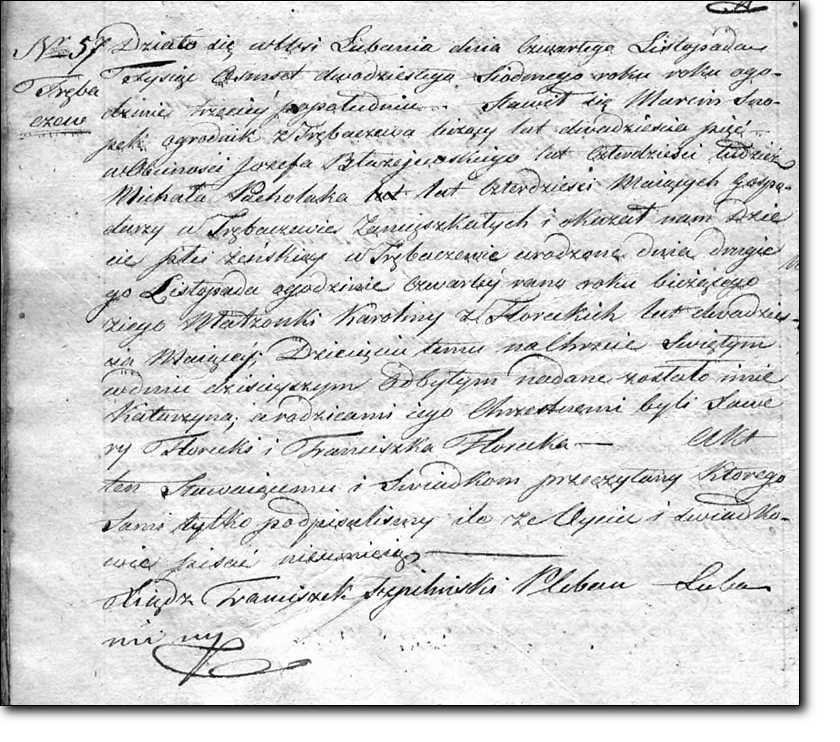 Nro 57 Działo się w Wsi Lubania dnia Czwartego Listopada
Tręba Tysiąc Osmset dwudziestego Siodmego roku roku ogo-
czew dzinie trzeciey popołudniu. Stawił się Marcin
ogrodnik z Trębaczewa lat dwadziescia pięć
w Obecności Jozefa Błazejewskiego lat Czterdziesci tudzież
Michała Pacholaka lat Czterdziesci Maiących Gospo-
darzy w Trębaczewie Zamięszkałych i okazał nam Dzie
cie płci żeńskiey w Trębaczewie urodzone dnia drugie
go Listopada ogodzinie Czwartey rano roku bieżącego
z iego Małzonki Karoliny z Floreckich lat dwadzies-
cia Maiącey. Dziecięciu temu na Chrzcie Swiętym
w dniu dzisieyszym Odbytym nadane zostało imie
Katarzyna, a rodzicami iego Chrzestnemi byli Sawe
ry Florecki i Franciszka Florecka — Akt
ten Stawaiącemu i Swiadkom przeczytany Ktorego
Sami tylko podpisalismy ile ze Oyciec i swiadko-
wie pisać nieumieią
Xiądz Franciszek Pleban Luba
nski